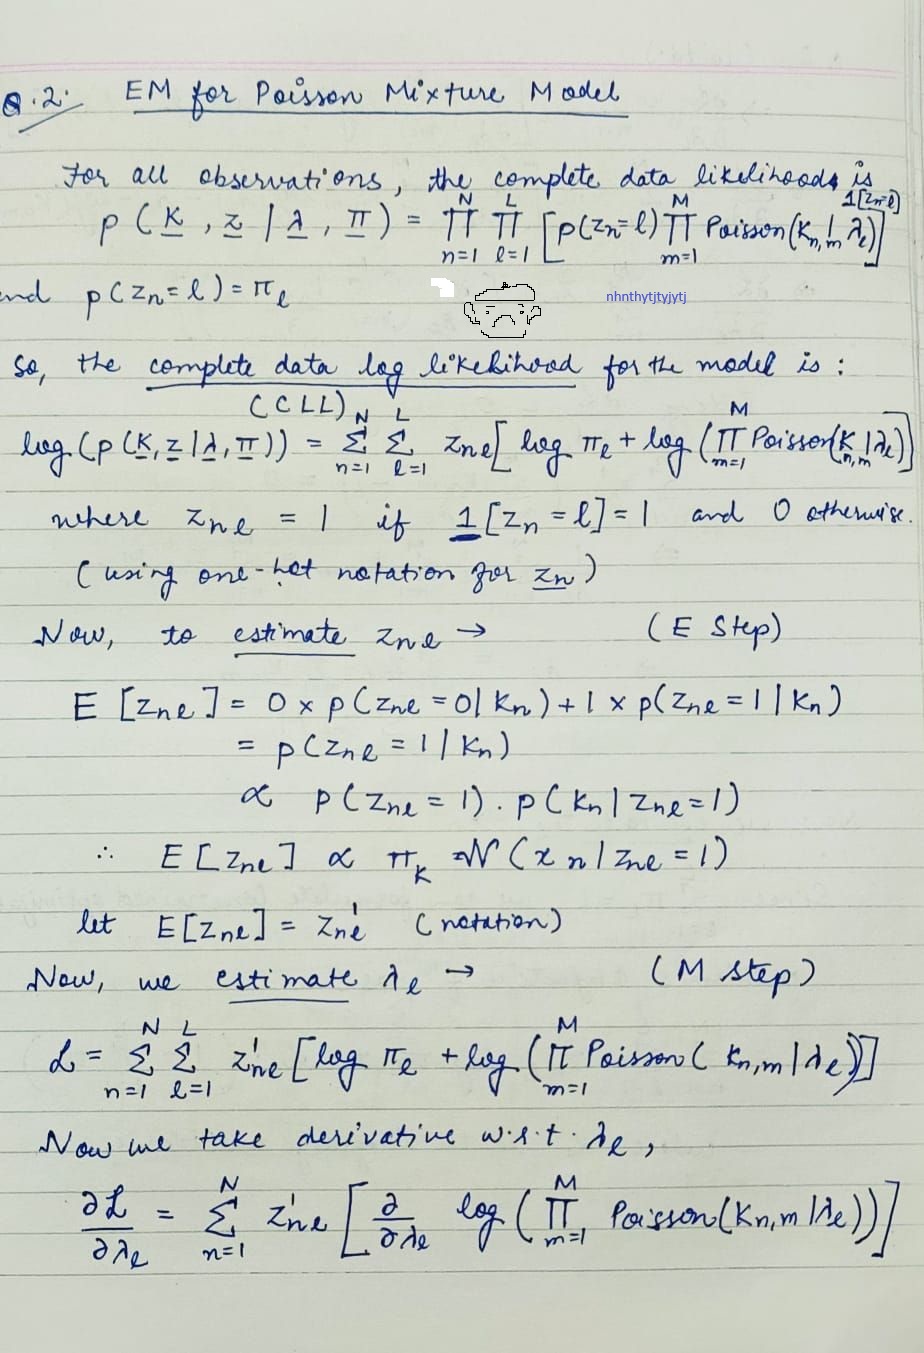 Q.2. EM for Poisson Mixture Model
For all observations, the complete data likelihoods is
p(K, z | λ, π) = ∏_{n=1}^{N} ∏_{l=1}^{L} [p(z_n=l) ∏_{m=1}^{M} Poisson(k_{n,m} | λ_l)]^{1[z_n=l]}
and p(z_n = l) = π_l
nhnthytjtyjytj
So, the complete data log likelihood for the model is :
(CLL)
log(p(K, z | λ, π)) = Σ_{n=1}^{N} Σ_{l=1}^{L} z_{nl} [log π_l + log(∏_{m=1}^{M} Poisson(k_{n,m} | λ_l))]
where z_{nl} = 1 if 1[z_n = l] = 1 and 0 otherwise.
(using one-hot notation for z_n)
Now, to estimate z_{nl} → (E Step)
E[z_{nl}] = 0 × p(z_{nl} = 0 | k_n) + 1 × p(z_{nl} = 1 | k_n)
= p(z_{nl} = 1 | k_n)
∝ p(z_{nl} = 1) . p(k_n | z_{nl} = 1)
∴ E[z_{nl}] ∝ π_K N(x_n | z_{nl} = 1)
let E[z_{nl}] = z'_{nl} (notation)
Now, we estimate λ_l → (M step)
ℒ = Σ_{n=1}^{N} Σ_{l=1}^{L} z'_{nl} [log π_l + log(∏_{m=1}^{M} Poisson(k_{n,m} | λ_l))]
Now we take derivative w.r.t. λ_l,
∂ℒ/∂λ_l = Σ_{n=1}^{N} z'_{nl} [∂/∂λ_l log(∏_{m=1}^{M} Poisson(k_{n,m} | λ_l))]